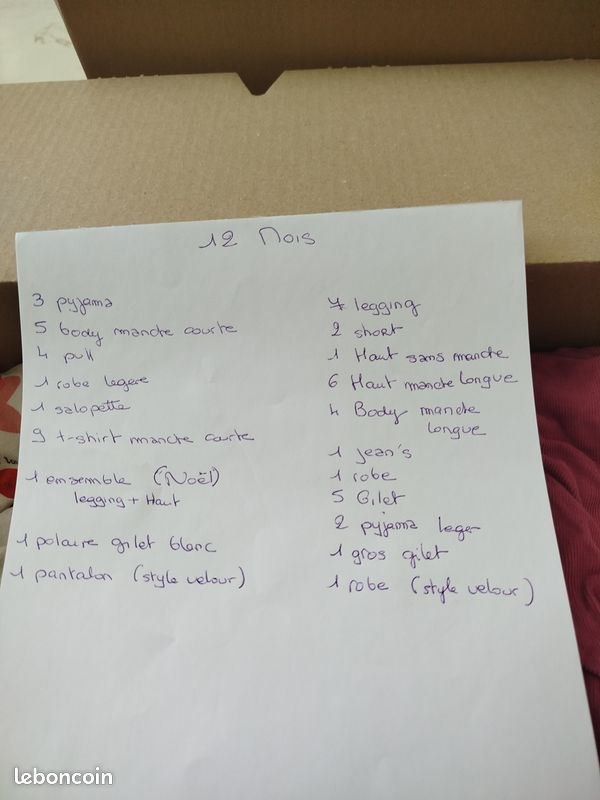 12 Mois
3 pyjama
5 body manche courte
4 pull
1 robe legere
1 salopette
9 t-shirt manche courte
1 ensemble (Noël)
legging + Haut
1 polaire gilet blanc
1 pantalon (style velour)
7 legging
2 short
1 Haut sans manche
6 Haut manche longue
4 Body manche
longue
1 jean's
1 robe
5 Gilet
2 pyjama leger
1 gros gilet
1 robe (style velour)
leboncoin